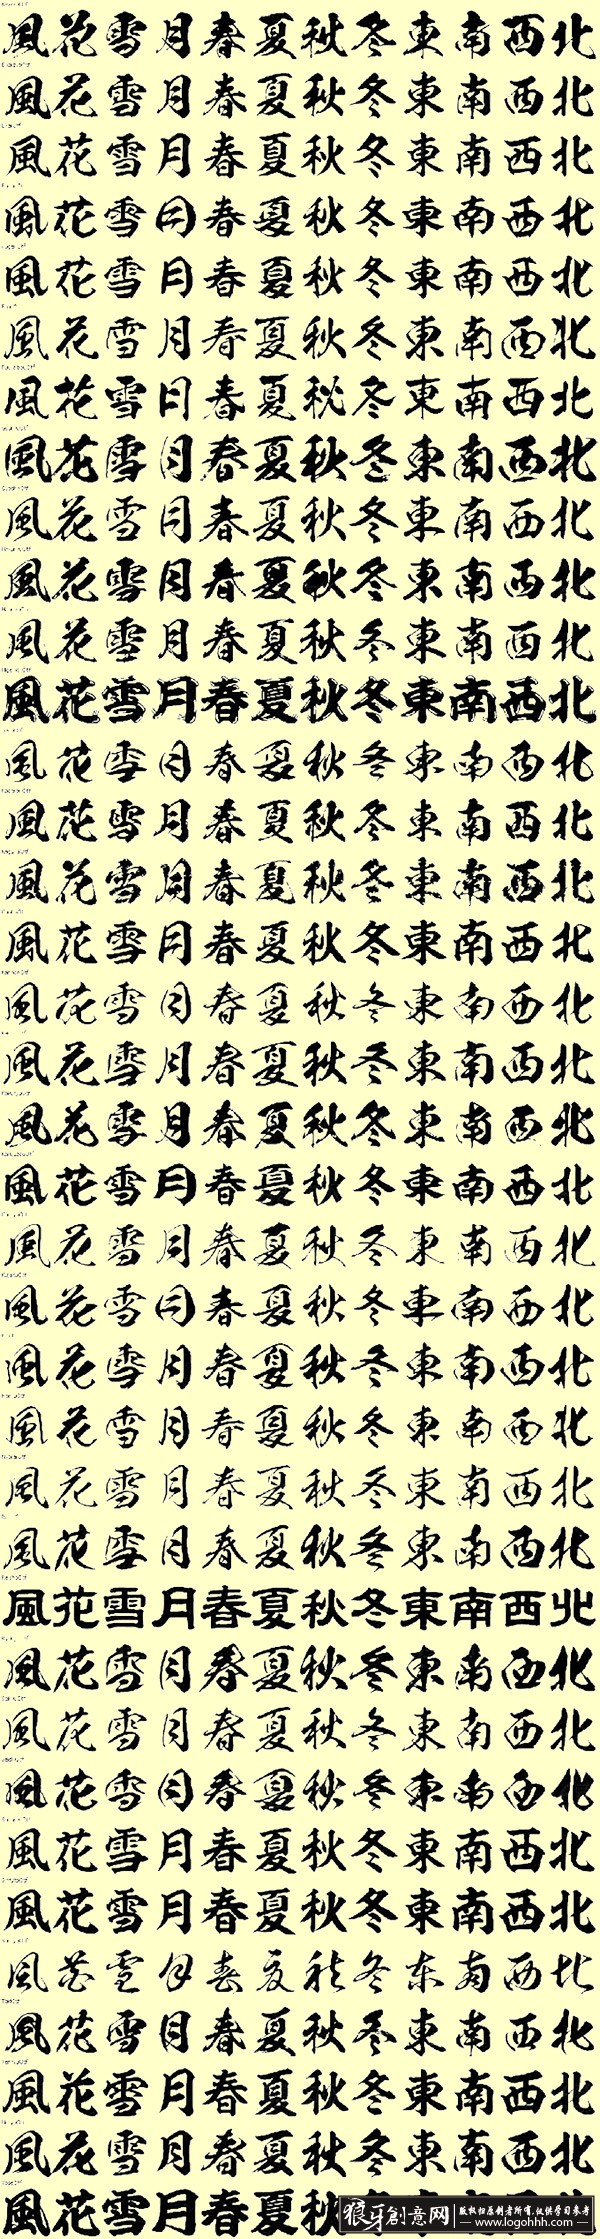 風花雪月春夏秋冬東南西北
風花雪月春夏秋冬東南西北
風花雪月春夏秋冬東南西北
風花雪月春夏秋冬東南西北
風花雪月春夏秋冬東南西北
風花雪月春夏秋冬東南西北
風花雪月春夏秋冬東南西北
風花雪月春夏秋冬東南西北
風花雪月春夏秋冬東南西北
風花雪月春夏秋冬東南西北
風花雪月春夏秋冬東南西北
風花雪月春夏秋冬東南西北
風花雪月春夏秋冬東南西北
風花雪月春夏秋冬東南西北
風花雪月春夏秋冬東南西北
風花雪月春夏秋冬東南西北
風花雪月春夏秋冬東南西北
風花雪月春夏秋冬東南西北
風花雪月春夏秋冬東南西北
風花雪月春夏秋冬東南西北
風花雪月春夏秋冬東南西北
風花雪月春夏秋冬東南西北
風花雪月春夏秋冬東南西北
風花雪月春夏秋冬東南西北
風花雪月春夏秋冬東南西北
風花雪月春夏秋冬東南西北
風花雪月春夏秋冬東南西北
風花雪月春夏秋冬東南西北
風花雪月春夏秋冬東南西北
風花雪月春夏秋冬東南西北
風花雪月春夏秋冬東南西北
風花雪月春夏秋冬東南西北
風花雪月春夏秋冬东南西北
風花雪月春夏秋冬東南西北
風花雪月春夏秋冬東南西北
風花雪月春夏秋冬東南西北
風花雪月春夏秋
狼牙創意网
版权归原创者所有,仅供学习参考
www.logohhh.com